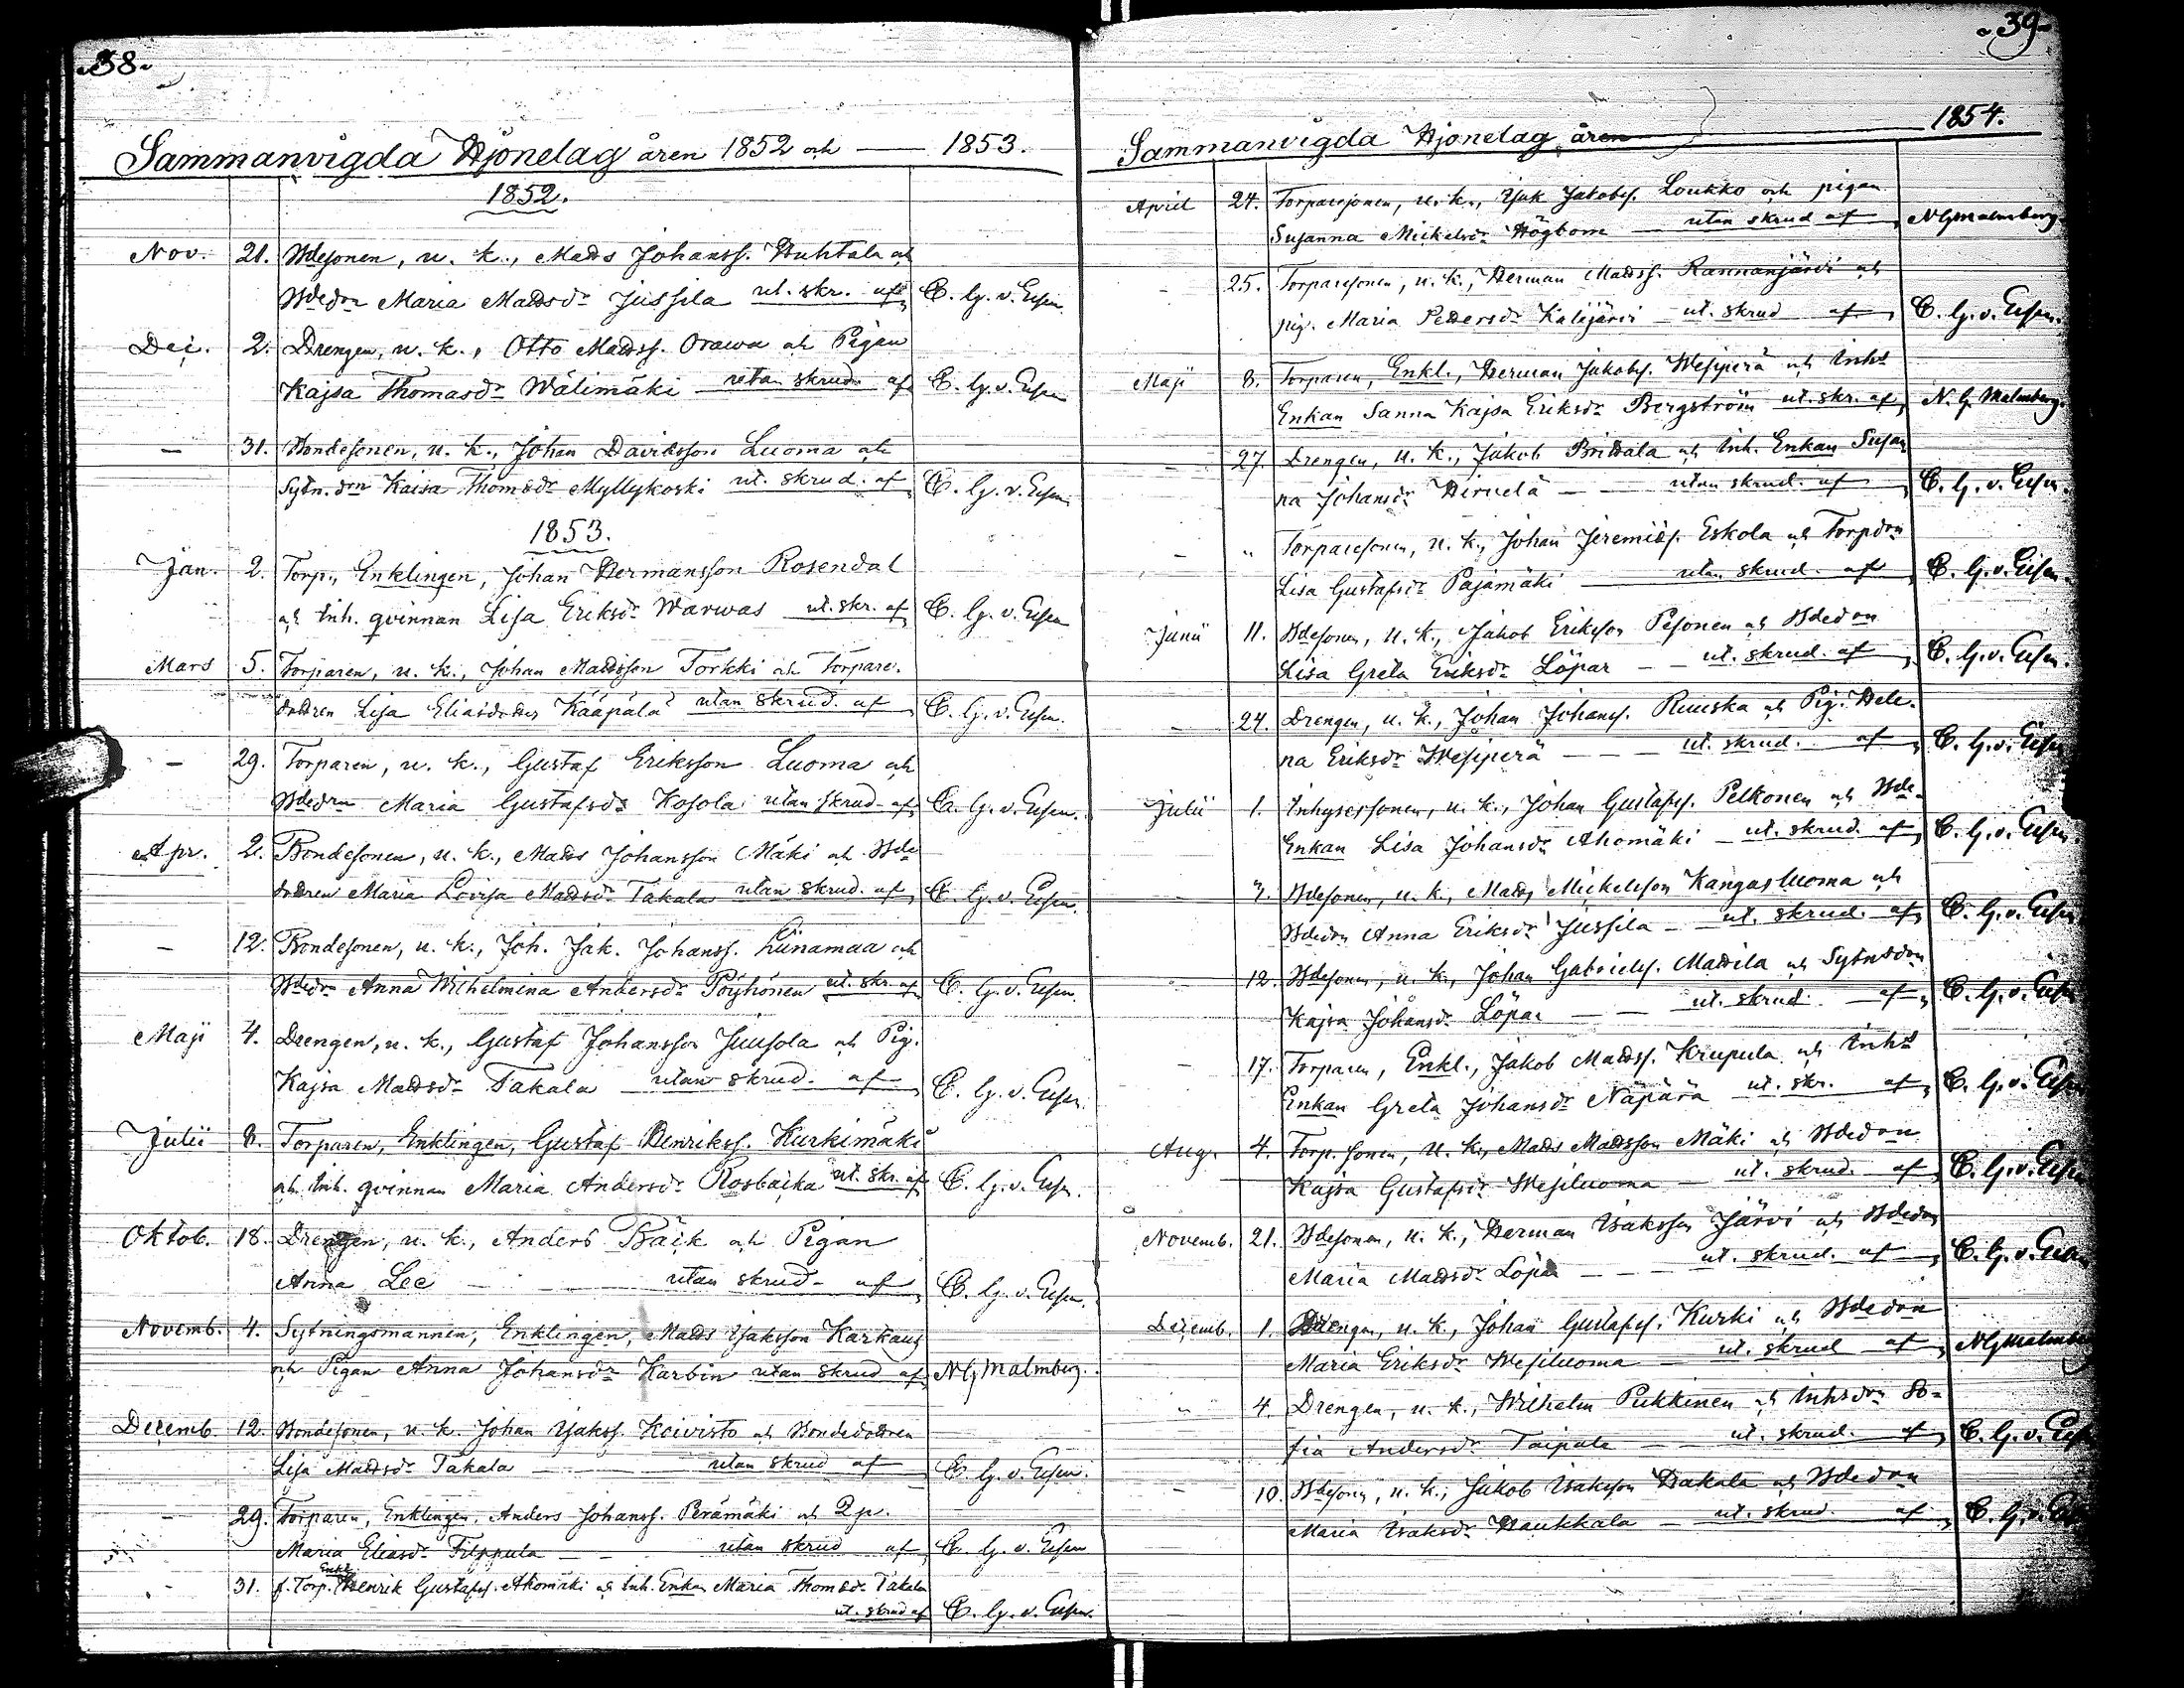 38.
Sammanvigda Hjonelag åren 1852 och — 1853.
1852.
Nov. 21. Bdesonen, u. k., Mads Johanss. Huhtala och
Bdedn Maria Madsdr Jussila ut. skr. af C. G. v. Essen.
Dec. 2. Drengen, u. k., Otto Madss. Orawa och Pigan
Kajsa Thomasdr Wälimäki utan skrud af C. G. v. Essen
— 31. Bondesonen, u. k., Johan Davidsson Luoma och
Sytn. dn Kaisa Thomsdr Myllykoski ut. skrud. af C. G. v. Essen.
1853.
Jan. 2. Torp., Enklingen, Johan Hermansson Rosendal
och Inh. qvinnan Lisa Eriksdr Warwas ut. skr. af C. G. v. Essen
Mars 5. Torparen, u. k., Johan Madsson Torkki och Torpare-
dottren Lisa Eliasdotter Kääpälä utan skrud. af C. G. v. Essen.
— 29. Torparen, u. k., Gustaf Eriksson Luoma och
Bdedn Maria Gustafsdr Kosola utan skrud af C. G. v. Essen.
Apr. 2. Bondesonen, u. k., Mads Johansson Mäki och Bde
dottren Maria Lovisa Madsdr Takala utan skrud. af C. G. v. Essen.
— 12. Bondesonen, u. k., Joh. Jak. Johanss. Liinamaa och
Bdedn Anna Wilhelmina Andersdr Pöyhönen ut. skr. af C. G. v. Essen.
Maji 4. Drengen, u. k., Gustaf Johansson Juusola och Pig.
Kajsa Madsdr Takala utan skrud. af C. G. v. Essen.
Julii 8. Torparen, Enklingen, Gustaf Henrikss. Kurkimäki
och Inh. qvinnan Maria Andersdr Rosbacka ut. skr. af C. G. v. Essen.
Oktob. 18. Drengen, u. k., Anders Bäck och Pigan
Anna Lee — utan skrud af C. G. v. Essen.
Novemb. 4. Sytningsmannen, Enklingen, Mads Isaksson Karkaus
och Pigan Anna Johansdr Karbin utan skrud af N G Malmberg.
Decemb. 12. Bondesonen, u. k. Johan Isakss. Koivisto och Bondedottren
Lisa Madsdr Takala — utan skrud af C. G. v. Essen.
— 29. Torparen, Enklingen, Anders Johanss. Perämäki och Qp.
Maria Eliasdr Filppula — utan skrud af C. G. v. Essen
— 31. f. Torp. Enkl. Henrik Gustafss. Ahomäki och Inh. Enkan Maria Thomsdr Takala
ut. skrud af C. G. v. Essen.
39
Sammanvigda Hjonelag åren — 1854.
April 24. Torparesonen, u. k., Isak Jakobs. Loukko och pigan
Susanna Mickelsdr Högbom — utan skrud af N G Malmberg.
- 25. Torparesonen, u. k., Herman Madss. Rannanjärvi och
pig. Maria Pettersdr Katijärvi ut. skrud af C. G. v. Essen.
Maji 8. Torparen, Enkl., Herman Jakobs. Wesiperä och Inhs
Enkan Sanna Kajsa Eriksdr Bergström ut. skr. af N. G. Malmberg.
- 27. Drengen, u. k., Jakob Pribala och Inh. Enkan Susan
na Johansdr Hirvelä — utan skrud. af C. G. v. Essen.
- " Torparesonen, u. k., Johan Jeremias. Eskola och Torpdn
Lisa Gustafsdr Pajamäki — utan skrud. af C. G. v. Essen.
Junii 11. Bdesonen, u. k., Jakob Eriksson Pesonen och Bdedon
Lisa Greta Eriksdr Löpar — ut. skrud. af C. G. v. Essen.
- 24. Drengen, u. k., Johan Johanss. Ruuska och Pig. Hele-
na Eriksdr Wesiperä — ut. skrud. af C. G. v. Essen
Julii 1. Inhysessonen, u. k., Johan Gustafss. Pelkonen och Bde-
Enkan Lisa Johansdr Ahomäki — ut. skrud. af C. G. v. Essen.
- 7. Bdesonen, u. k., Mads Mickelsson Kangasluoma och
Bdedon Anna Eriksdr Jussila — ut. skrud. af C. G. v. Essen
- 12. Bdesonen, u. k., Johan Gabriels. Mattila och Sytnsdon
Kajsa Johansdr Löpar — ut. skrud. af C. G. v. Essen
- 17. Torparen, Enkl., Jakob Madss. Krupula och Inhs
Enkan Greta Johansdr Näpärä ut. skr. af C. G. v. Essen
Aug. 4. Torp. sonen, u. k., Mads Madsson Mäki och Bdedon
Kajsa Gustafsdr Wesiluoma — ut. skrud. af C. G. v. Essen
Novemb. 21. Bdesonen, u. k., Herman Isaksson Järvi och Bdedon
Maria Madsdr Löpar — ut. skrud. af C. G. v. Essen
Decemb. 1. Drengen, u. k., Johan Gustafss. Kurki och Bdedon
Maria Eriksdr Wesiluoma — ut. skrud af N G Malmberg
" 4. Drengen, u. k., Wilhelm Pukkinen och Inhsdon So-
fia Andersdr Taipale — ut. skrud. af C. G. v. Essen
- 10. Bdesonen, u. k., Jakob Isaksson Hakala och Bdedon
Maria Isaksdr Haukkala — ut. skrud. af C. G. v. Essen